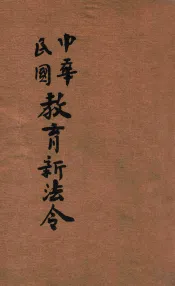 中華民國教育新法令